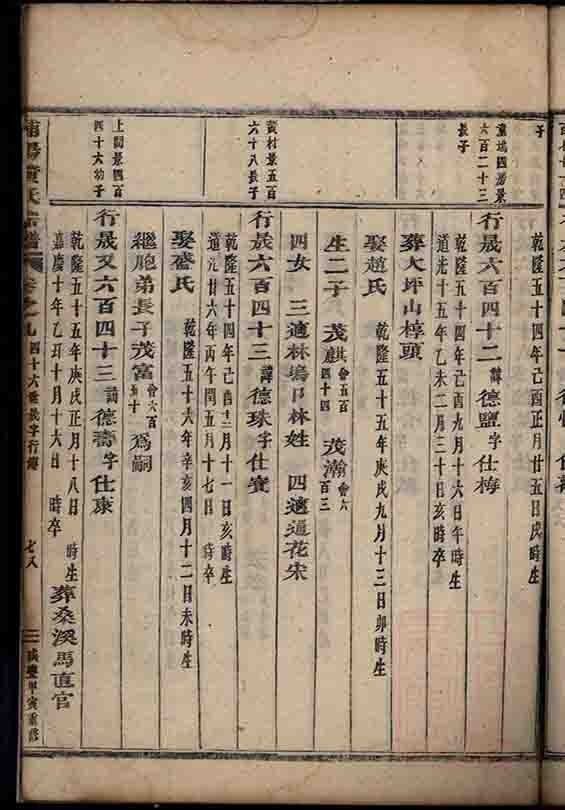 子
乾隆五十四年己酉正月廿五日戌時生
六百二十三
長子
行晟六百四十二諱德鹽字仕梅
乾隆五十四年己酉九月十六日午時生
道光十五年乙未二月三十日亥時卒
葬大坪山樟頭
娶趙氏 乾隆五十五年庚戌九月十三日卯時生
生二子 茂麒 四十四 茂瀚 會六百三
四女 三適林塢口林姓 四適通花宋
黃村景五百
六十八長子
行晟六百四十三諱德珠字仕寶
乾隆五十四年己酉十二月十一日亥時生
道光廿六年丙午閏五月十七日 時卒
娶潘氏 乾隆五十六年辛亥四月十二日未時生
繼胞弟長子茂富會六百五十為嗣
上閣景四百
四十六幼子
行晟又六百四十三諱德喬字仕康
乾隆五十五年庚戌正月十八日 時生
嘉慶十年乙丑十月十六日 時卒
葬桑溪馬直官
黃氏宗譜 卷之九 四十六世晟字行傳 七八 咸豐甲寅重修